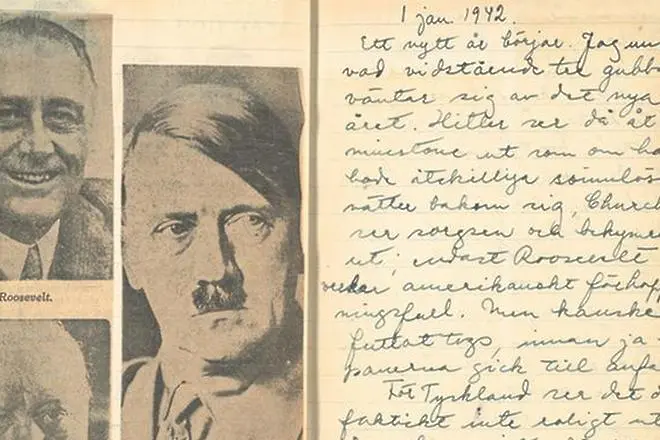 Roosevelt.
1 jan. 1942.
Ett nytt år börjar. Jag un
vad vidstående tre gubba
väntar sig av det nya
året. Hitler ser då åt
minstone ut som om ha
hade åtskilliga sömnlös
nätter bakom sig, Church
ser sorgsen och bekymr
ut; endast Roosevelt
verkar amerikanskt förhopp
ningsfull. Men kanske
togs, innan ja
panerna gick till anfa
För Tyskland ser det
faktiskt inte roligt ut